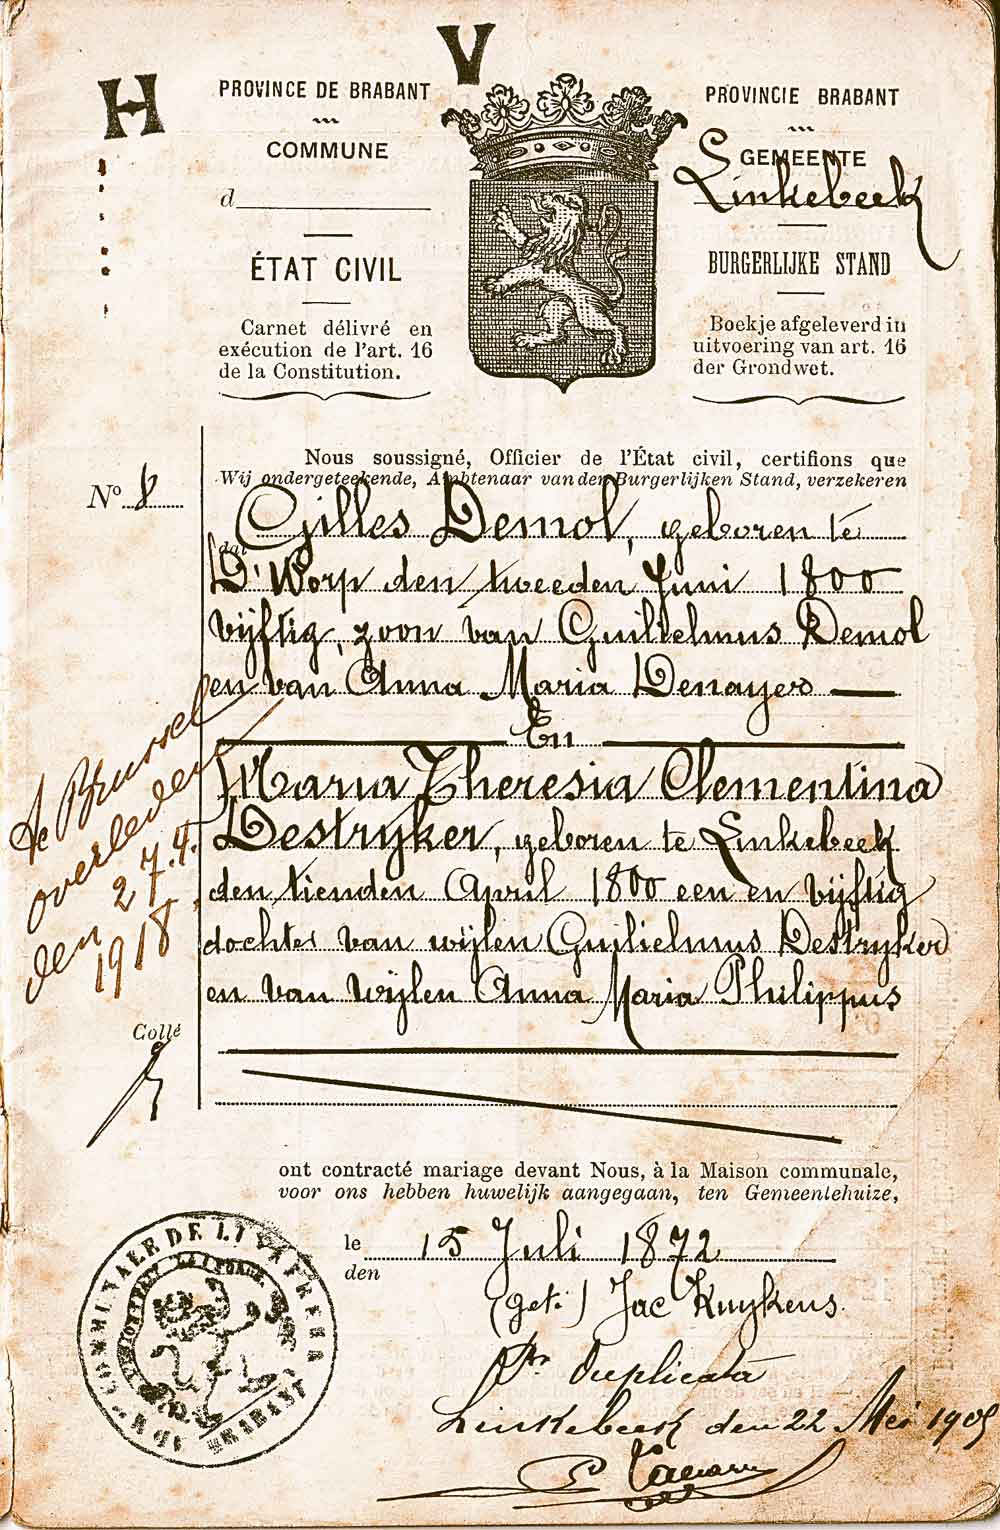 H V
PROVINCE DE BRABANT
COMMUNE
d
ÉTAT CIVIL
Carnet délivré en
exécution de l'art. 16
de la Constitution.
PROVINCIE BRABANT
GEMEENTE
Linkebeek
BURGERLIJKE STAND
Boekje afgeleverd in
uitvoering van art. 16
der Grondwet.
No 8
Nous soussigné, Officier de l'État civil, certifions que
Wij ondergeteekende, Ambtenaar van den Burgerlijken Stand, verzekeren
dat
Gilles Demol, geboren te
D'Worp den tweeden Juni 1800
vijftig, zoon van Guilielmus Demol
en van Anna Maria Denayer
En
Maria Theresia Clementina
Destryker, geboren te Linkebeek
den tienden April 1800 een en vijftig
dochter van wijlen Guilielmus Destryker
en van wijlen Anna Maria Philippus
te Brussel
overleden
den 27.4.
1918
Collé
ont contracté mariage devant Nous, à la Maison communale,
voor ons hebben huwelijk aangegaan, ten Gemeentehuize,
le 15 Juli 1872
den
(get.) Jac Kuykens
Pr Duplicata
Linkebeek den 22 Mei 1905
COMMUNALE DE
BRABANT